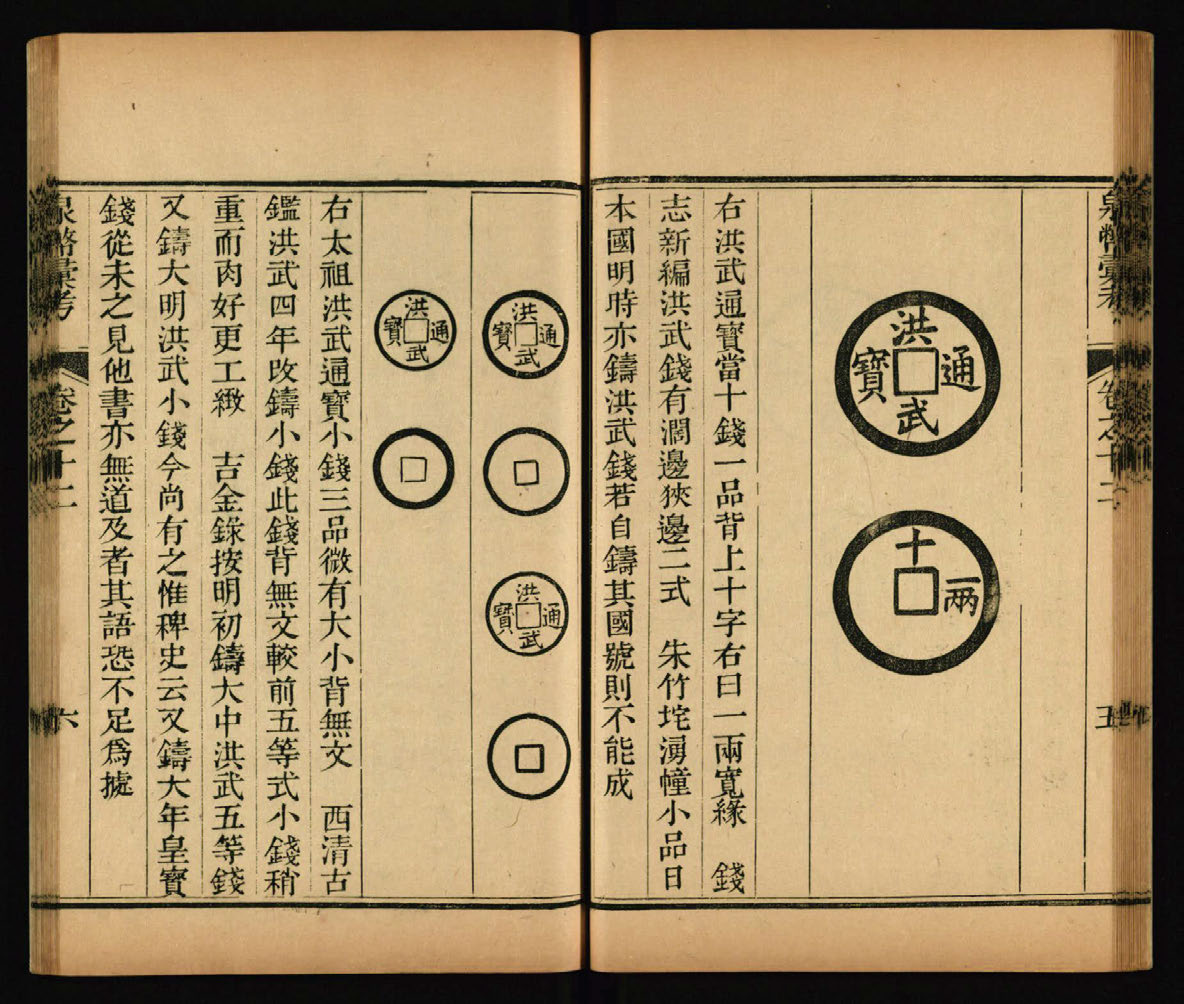 泉幣彙考
卷之十二
五
洪武通寶
十
一兩
右洪武通寶當十錢一品背上十字右曰一兩寬緣　錢
志新編洪武錢有濶邊狹邊二式　朱竹垞湧幢小品日
本國明時亦鑄洪武錢若自鑄其國號則不能成
洪武通寶
洪武通寶
洪武通寶
右太祖洪武通寶小錢三品微有大小背無文　西清古
鑑洪武四年改鑄小錢此錢背無文較前五等式小錢稍
重而肉好更工緻　吉金錄按明初鑄大中洪武五等錢
又鑄大明洪武小錢今尚有之惟稗史云又鑄大年皇寶
錢從未之見他書亦無道及者其語恐不足爲㨿
泉幣彙考
卷之十二
六